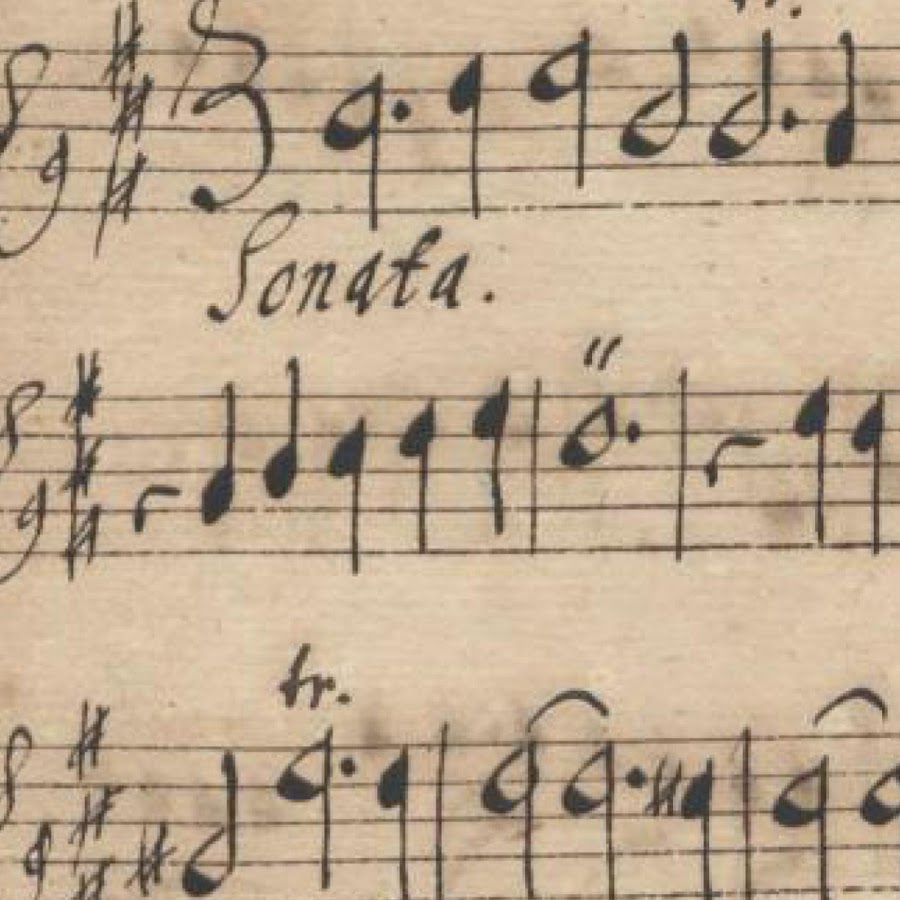 3
Sonata.
tr.